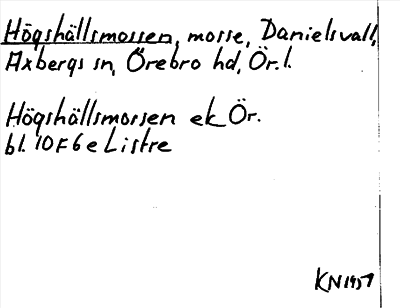 Högshällsmossen, mosse, Danielsvall,
Axbergs sn, Örebro hd, Ör. l.
Högshällsmossen ek Ör.
bl. 10F6e Listre